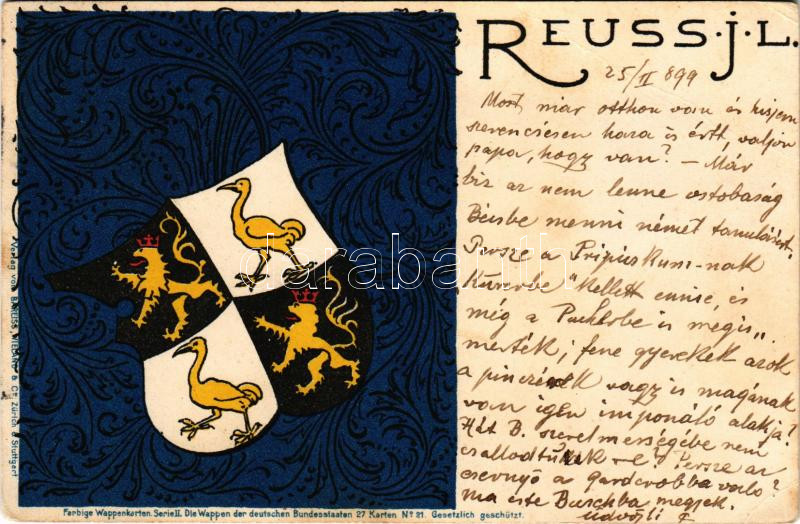 REUSS·J·L.
25/II 899
Most már otthon van és hiszem
szerencsésen haza is ért, valjon
papa, hogy van? — Már
biz az nem lenne ostobaság
Bécsbe menni német tanulásért.
Persze a -nak
Kellett ennie, és
még a is megis„
merték; fene gyerekek azok
a pinczérek vagy is magának
van igen imponáló alakja?
Hát B. szerelmességébe nem
csallodtunk -e? Persze az
esernyő a garderobba való?
ma este Buschba megyek.
Üdvözli
Verlag von & Co. Zürich & Stuttgart
Farbige Wappenkarten. Serie II. Die Wappen der deutschen Bundesstaaten 27 Karten No 21. Gesetzlich geschützt.
darabanth